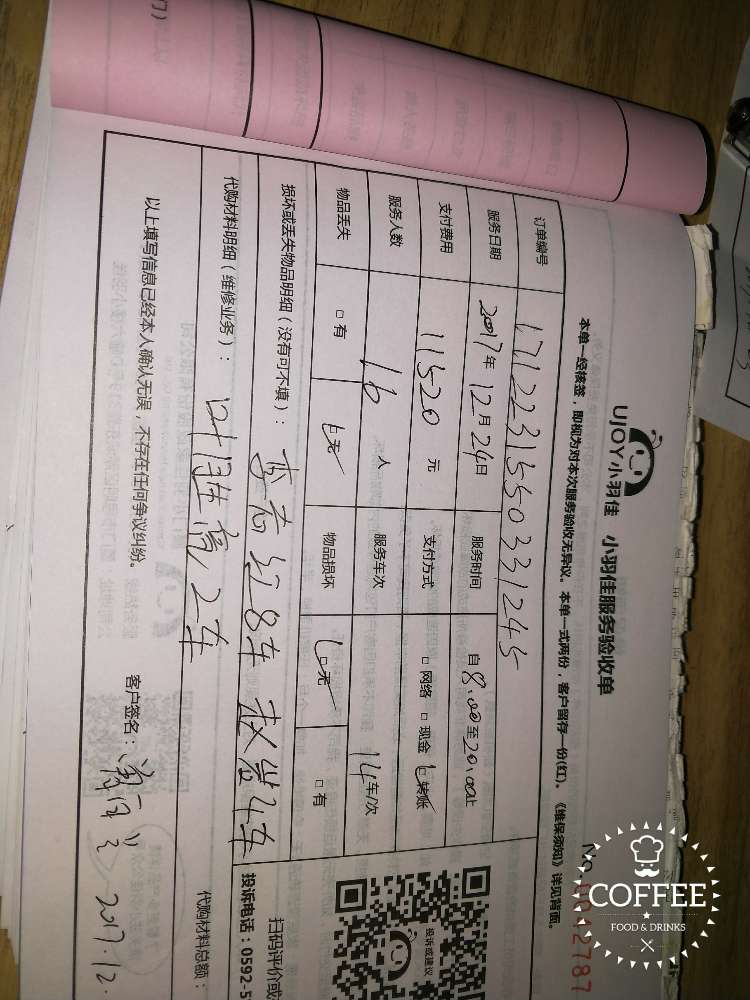 UJOY小羽佳 小羽佳服务验收单
No 0042787
本单一经核签，即视为对本次服务验收无异议。本单一式两份，客户留存一份(红)。《维保须知》详见背面。
订单编号 171223155033 1245
服务日期 2017年12月24日 服务时间 自8:00至20:00止
支付费用 11520元 支付方式 □网络 □现金 □转账
服务人数 16人 服务车次 14车/次
物品丢失 □有 □无 物品损坏 □无 □有
损坏或丢失物品明细（没有可不填）： 8车 4车
代购材料明细（维修业务）： 2车
代购材料总额：
以上填写信息已经本人确认无误，不存在任何争议纠纷。
客户签名： 2017.12.
投诉或建议
扫码评价或
投诉电话：0592-5
COFFEE
FOOD & DRINKS